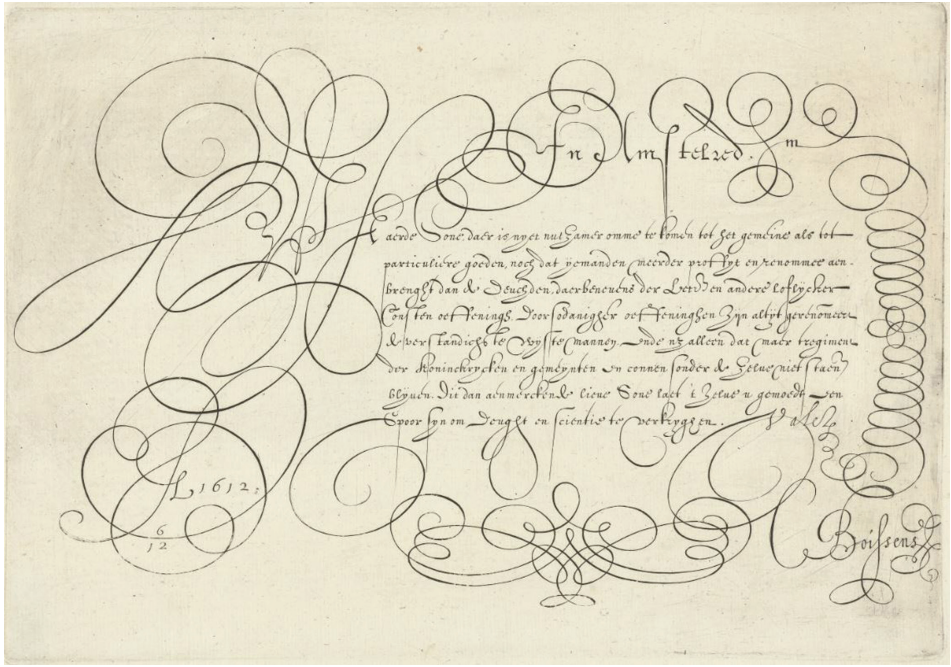 In Amstelred.m
Waerde Sone, daer is nyet nutzamer omme te komen tot het gemeine als tot
particuliere goeden, noch dat yemanden meerder proffyt en renommee aen-
brenght dan de Deuchden, daerbenevens der Lett en andere loflycker
Consten oeffeningh. Door sodanigher oeffeninghen Zyn altyt gerenomeert
de verstandichste Wysste mannen. Ende nz alleen dat maer tregiment
der Koninckrycken en gemeynten en connen sonder de Zelve niet staen
blyven. Dit dan aenmerckende lieve Sone laet 't Zelve u gemoedt een
Spoor syn om Deught en scientie te verkryghen. Vale
A 1612:
6
12
Boissens